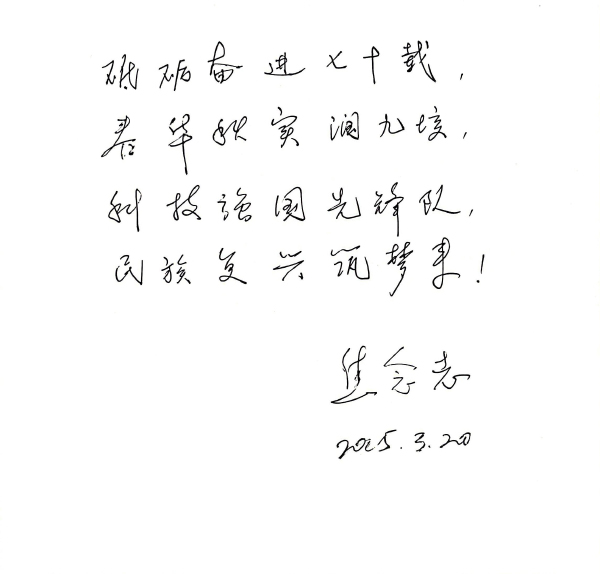 砥砺奋进七十载,
春华秋实润九垓,
科技强国先锋队,
民族复兴筑梦来!
焦念志
2025.3.20